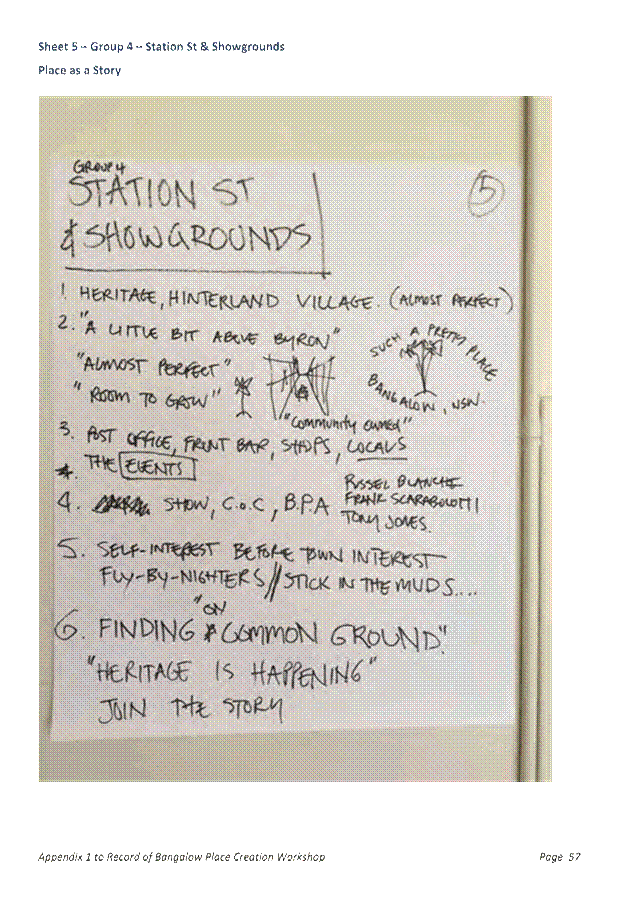 Sheet 5 – Group 4 – Station St & Showgrounds
Place as a Story
GROUP 4
STATION ST
& SHOWGROUNDS
5
1. HERITAGE, HINTERLAND VILLAGE. (ALMOST PERFECT)
2. "A LITTLE BIT ABOVE BYRON"
"ALMOST PERFECT"
"ROOM TO GROW"
SUCH A PRETTY PLACE
BANGALOW, NSW.
"Community owned"
3. POST OFFICE, FRONT BAR, SHOPS, LOCALS
THE EVENTS
4. SHOW, C.o.C, B.P.A
RUSSEL BLANCHE
FRANK SCARABOLOTTI
TONY JONES.
5. SELF-INTEREST BEFORE TOWN INTEREST
FLY-BY-NIGHTERS // STICK IN THE MUDS....
6. FINDING "ON COMMON GROUND".
"HERITAGE IS HAPPENING"
JOIN THE STORY
Appendix 1 to Record of Bangalow Place Creation Workshop
Page 57